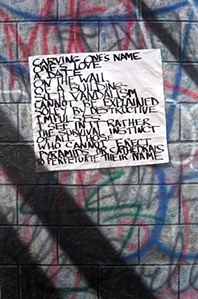 CARVING ONE'S NAME
ONE'S LOVE
A DATE
ON THE WALL
OF A BUILDING
SUCH VANDALISM
CANNOT BE EXPLAINED
SOLELY BY DESTRUCTIVE
IMPULSE
I SEE IN IT RATHER
THE SURVIVAL INSTINCT
OF ALL THOSE
WHO CANNOT ERECT
PYRAMIDS OR CATHEDRALS
TO PERPETUATE THEIR NAME